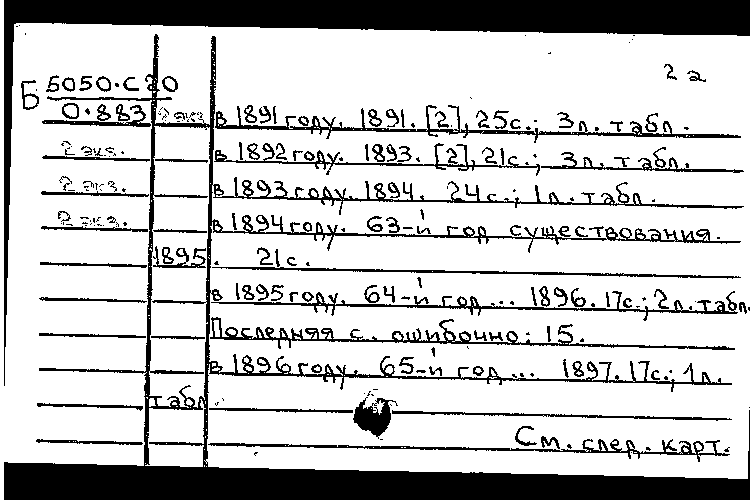 2а
Б 5050.С20
0.883 2 экз. в 1891 году. 1891. [2], 25с.; 3л. табл.
2 экз. в 1892 году. 1893. [2], 21с.; 3л. табл.
2 экз. в 1893 году. 1894. 24с.; 1л. табл.
2 экз. в 1894 году. 63-й год существования.
1895. 21с.
в 1895 году. 64-й год... 1896. 17с.; 2л. табл.
Последняя с. ошибочно: 15.
в 1896 году. 65-й год... 1897. 17с.; 1л.
табл
См. след. карт.